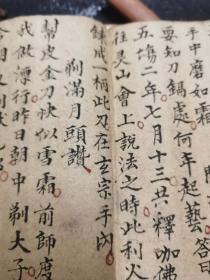 手中磨如霜
要知刀鍋處何年起藝
五傷二年七月十三廿六釋咖佛
往灵山會上說法之時此利火
鋳成一柄此刀在玄宗手內
剃滿月頭讚
幫皮金刀快似雪霜前師度
我做漂行昨日朝中剃大子